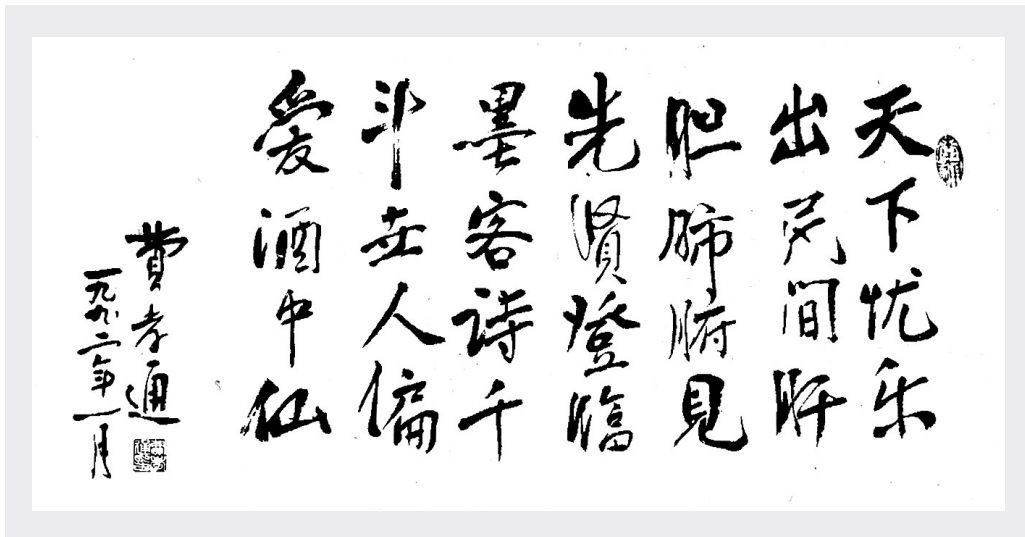 天下忧乐
出其間肝
胆肺腑見
先賢登臨
墨客诗千
斗世人偏
爱酒中仙
費孝通
一九九二年一月